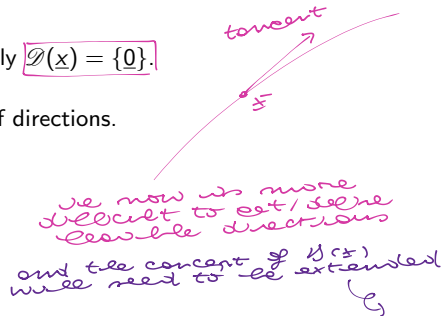 tangent
ly 𝒟(x) = {0}.
x̄
f directions.
now is more
difficult to get/define
feasible directions
and the concept of D(x)
will need to be extended